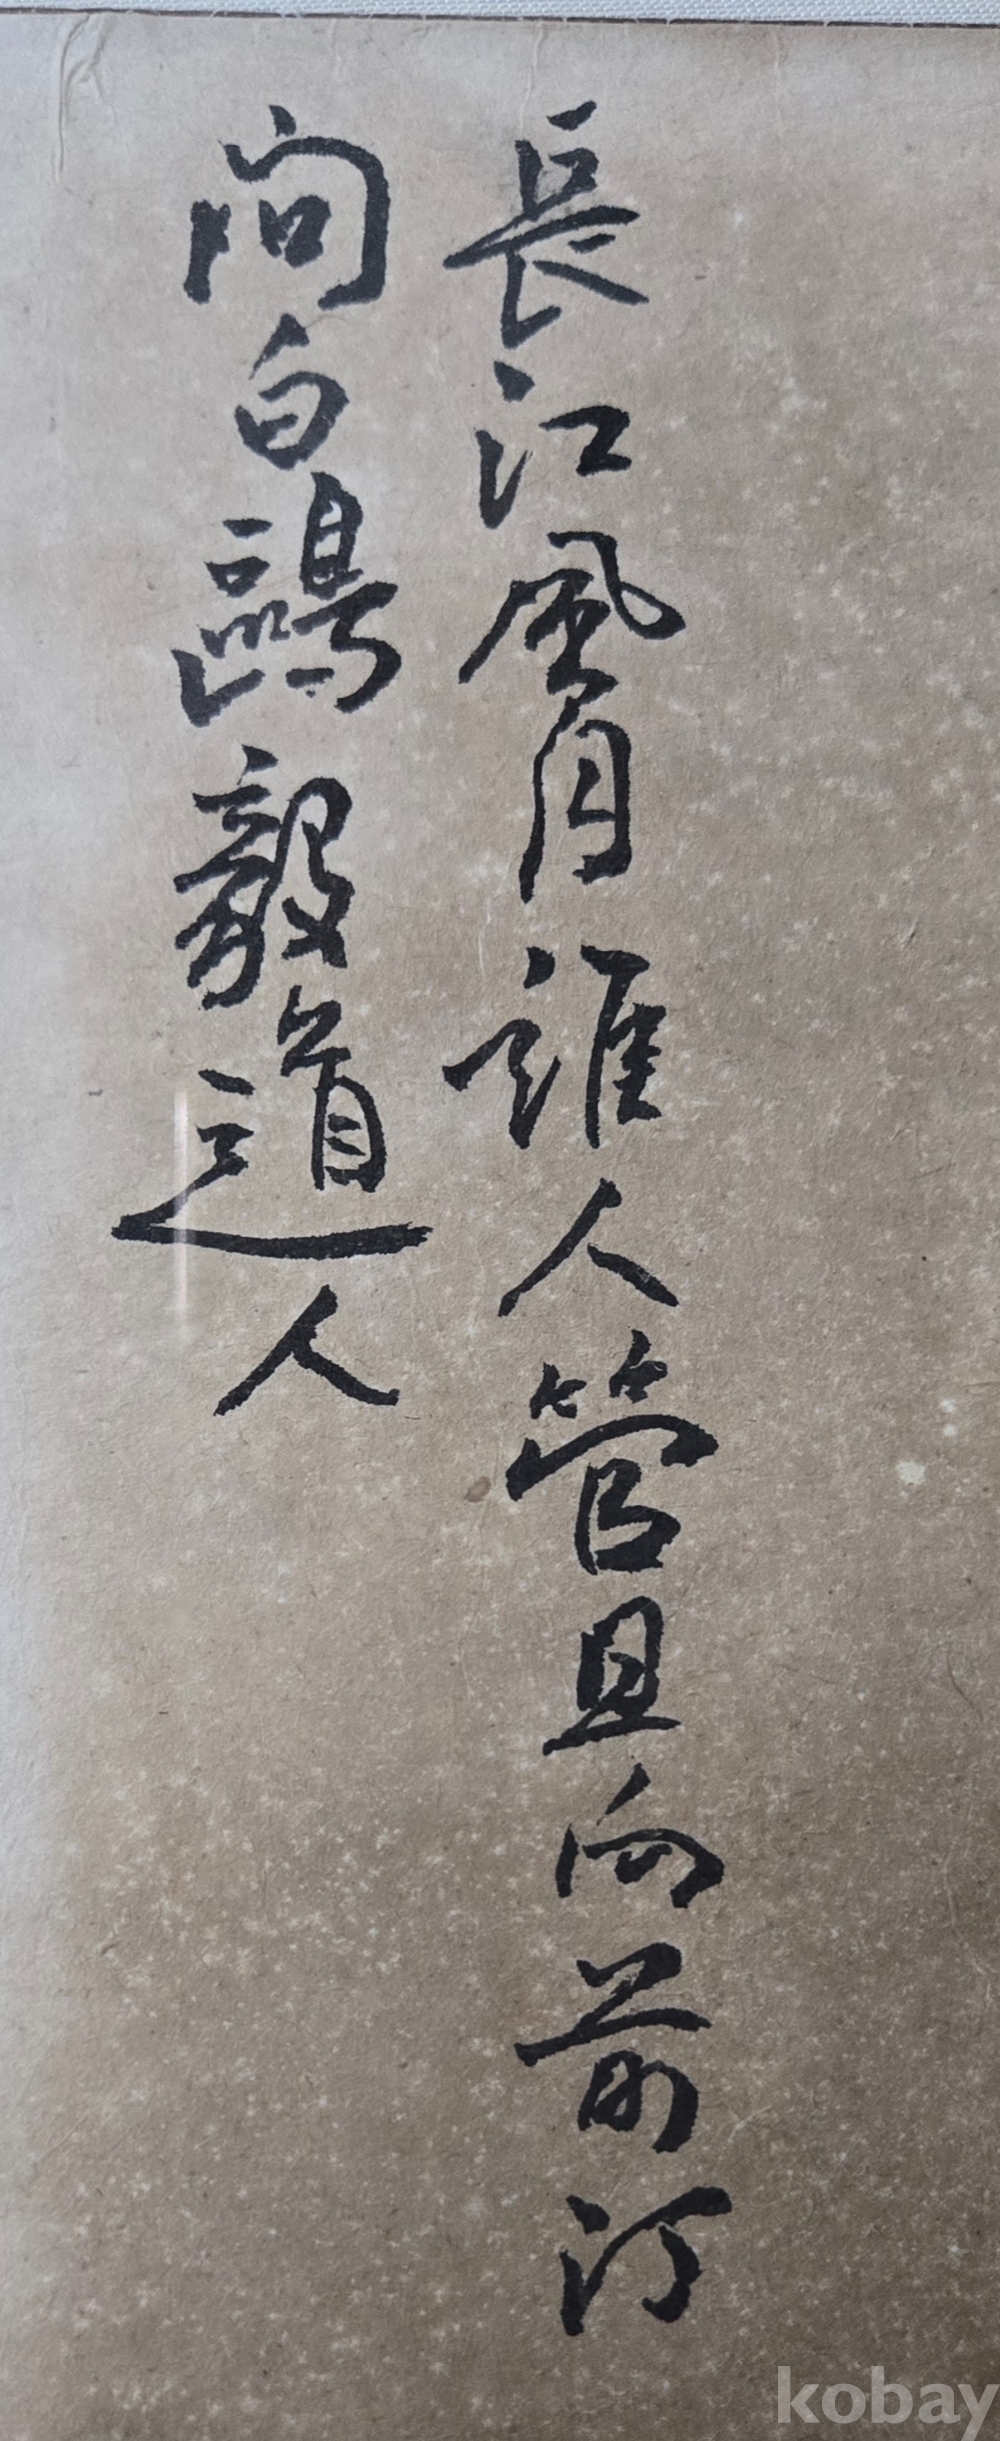 長江風月誰人管且向前汀
問白鷗毅道人
kobay